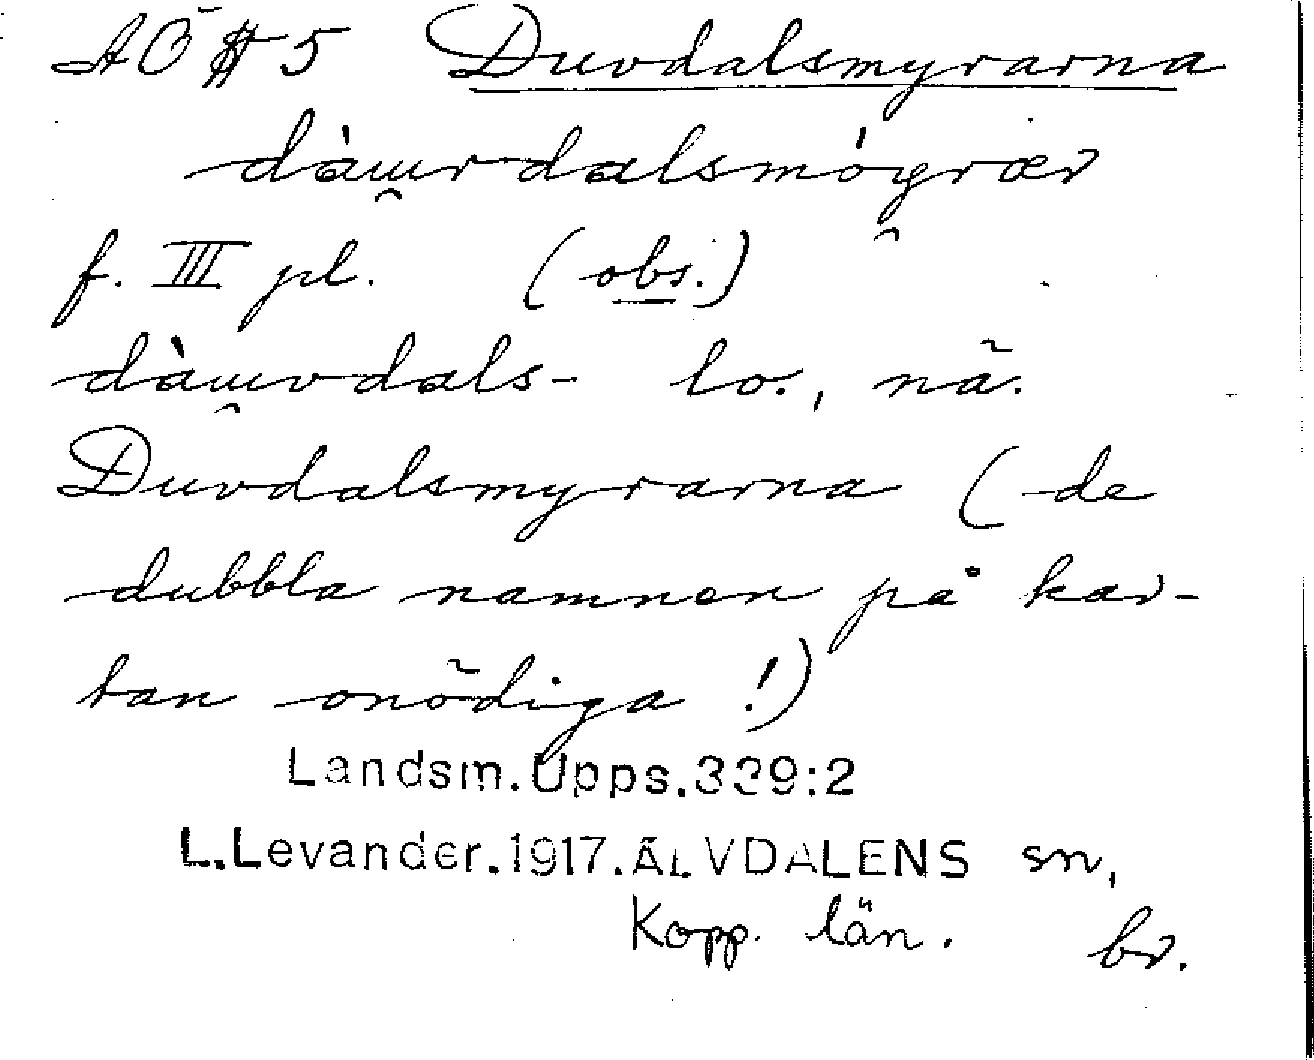 AÖ 5 Duvdalsmyrarna
dàɯvdalsmógrær
f. III pl. (obs.)
dàɯvdals- lo., nä.
Duvdalsmyrarna (de
dubbla namnen på kar-
tan onödiga!)
Landsm.Upps.339:2
L.Levander.1917.ÄLVDALENS sn,
Kopp. län. br.